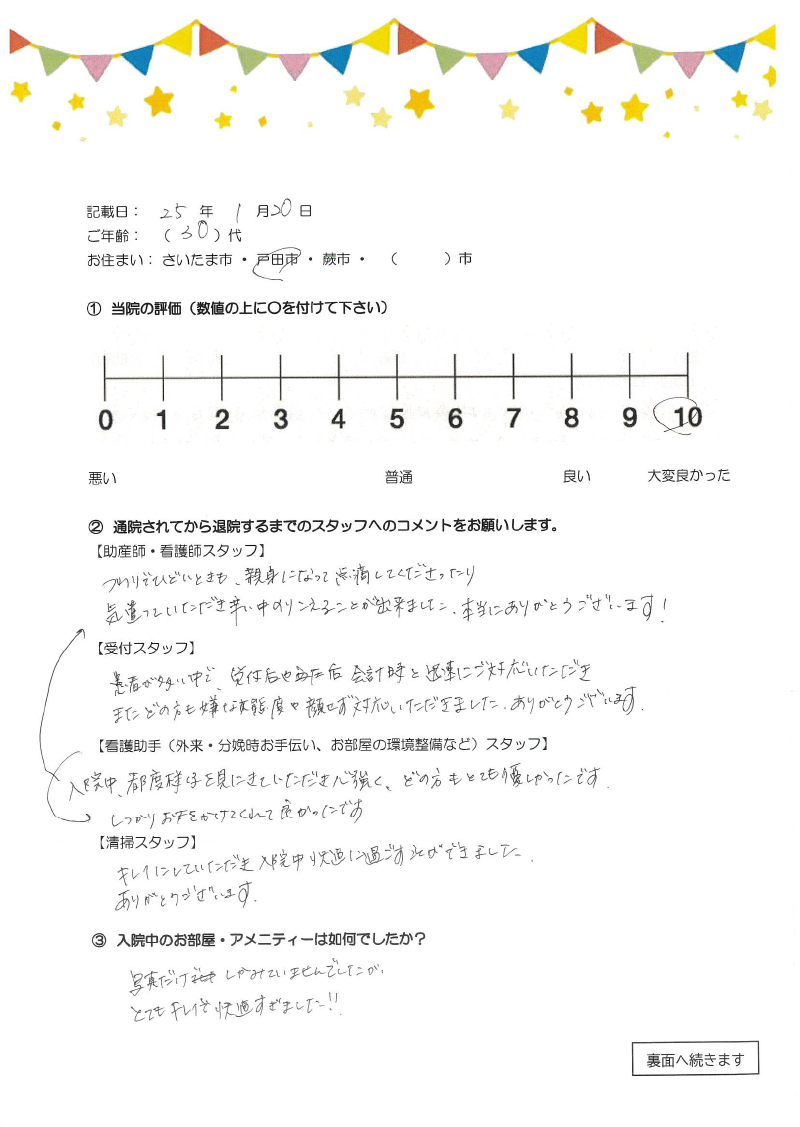 記載日： 25 年 1 月 20 日
ご年齢： （ 30 ）代
お住まい： さいたま市 ・ 戸田市 ・ 蕨市 ・ （ ）市
① 当院の評価（数値の上に〇を付けて下さい）
0 1 2 3 4 5 6 7 8 9 10
悪い 普通 良い 大変良かった
② 通院されてから退院するまでのスタッフへのコメントをお願いします。
【助産師・看護師スタッフ】
つわりでひどいときも、親身になって してくださったり
気遣っていただき辛い中のりこえることが出来ました、本当にありがとうございます！
【受付スタッフ】
患者が多い中で、受付后や 会計時と迅速にご対応いただき
またどの方も嫌な態度や顔せず対応いただきました。ありがとうございます。
【看護助手（外来・分娩時お手伝い、お部屋の環境整備など）スタッフ】
入院中、都度様子を見にきていただき心強く、どの方もとても優しかったです。
しっかりお声をかけてくれて良かったです
【清掃スタッフ】
キレイにしていただき入院中快適に過ごすことができました。
ありがとうございます。
③ 入院中のお部屋・アメニティーは如何でしたか？
写真だけ しかみていませんでしたが、
とてもキレイで快適すぎました!!
裏面へ続きます